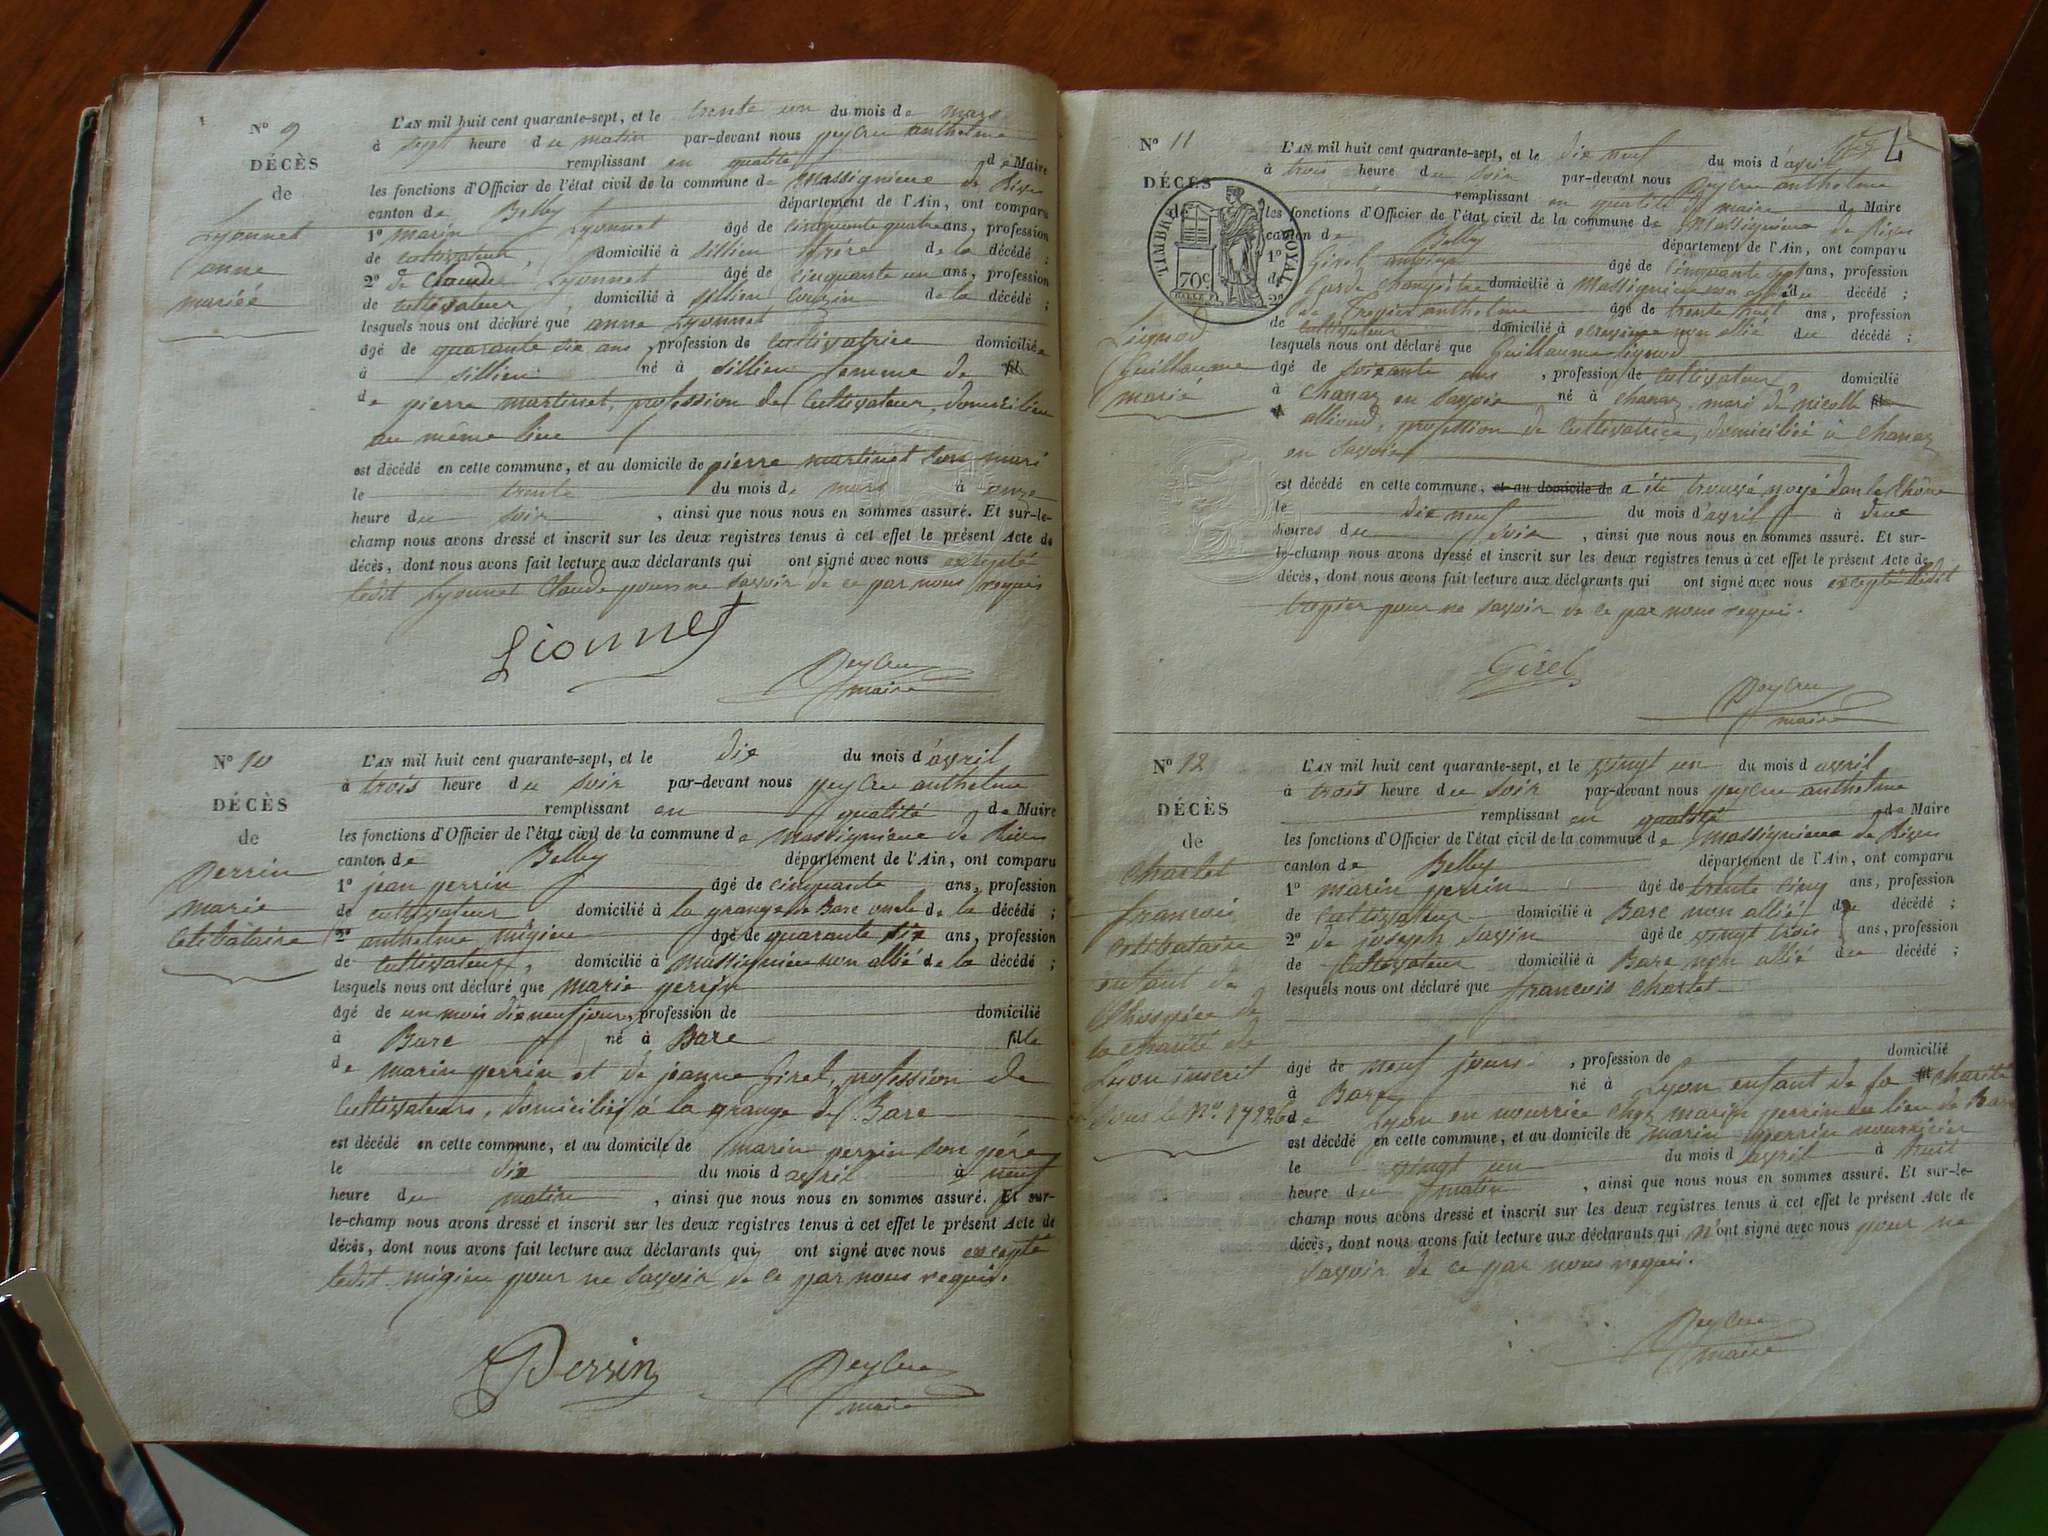 N° 9
DÉCÈS
de
Lyonnet
anne
mariée
L'AN mil huit cent quarante-sept, et le trente un du mois de mars
à sept heure du matin par-devant nous peyCru anthelme
remplissant en qualité de Maire
les fonctions d'Officier de l'état civil de la commune de massignieu de Rives
canton de Belley département de l'Ain, ont comparu
1° marin Lyonnet âgé de cinquante quatre ans, profession
de cultivateur, domicilié à sillien frère de la décédé ;
2° de Claude Lyonnet âgé de cinquante un ans, profession
de cultivateur domicilié à sillien couzin de la décédé ;
lesquels nous ont déclaré que anne Lyonnet
âgé de quarante six ans, profession de cultivatrice domiciliée
à sillien né à sillien femme de fil
de pierre martinet, profession de Cultivateur, domicilieu
au même lieu
est décédé en cette commune, et au domicile de pierre martinet son mari
le trente du mois de mars à onze
heure du soir, ainsi que nous nous en sommes assuré. Et sur-le-
champ nous avons dressé et inscrit sur les deux registres tenus à cet effet le présent Acte de
décès, dont nous avons fait lecture aux déclarants qui ont signé avec nous excepté
ledit Lyonnet Claude pour ne savoir de ce par nous requis
Lionnet
PeyCru
maire
N° 10
DÉCÈS
de
Perrin
marie
Celibataire
L'AN mil huit cent quarante-sept, et le dix du mois d'avril
à trois heure du soir par-devant nous peyCru anthelme
remplissant en qualité de Maire
les fonctions d'Officier de l'état civil de la commune de massignieu de Rives
canton de Belley département de l'Ain, ont comparu
1° jean perrin âgé de cinquante ans, profession
de cultivateur domicilié à la grange de Bare oncle de la décédé ;
2° anthelme migieu âgé de quarante six ans, profession
de Cultivateur, domicilié à massignieu non allié de la décédé ;
lesquels nous ont déclaré que marie perrin
âgé de un mois dix neuf jours, profession de domicilié
à Bare né à Bare fille
de marin perrin et de jeanne Girel, profession de
Cultivateurs, domiciliés à la grange de Bare
est décédé en cette commune, et au domicile de marin perrin son père
le dix du mois d avril à neuf
heure du matin, ainsi que nous nous en sommes assuré. Et sur-
le-champ nous avons dressé et inscrit sur les deux registres tenus à cet effet le présent Acte de
décès, dont nous avons fait lecture aux déclarants qui ont signé avec nous excepté
ledit migieu pour ne savoir de ce par nous requis.
Perrin
PeyCru
maire
N° 11
DÉCÈS
de
TIMBRE ROYAL
70c
Lignod
Guillaume
marié
L'AN mil huit cent quarante-sept, et le dix neuf du mois d'avril
à trois heure du soir par-devant nous PeyCru anthelme
remplissant en qualité de maire de Maire
les fonctions d'Officier de l'état civil de la commune de Massignieu de Rives
canton de Belley département de l'Ain, ont comparu
1° Girel âgé de cinquante sept ans, profession
de Garde Champêtre domicilié à Massignieu non allié du décédé ;
2° de Tropier anthelme âgé de trente huit ans, profession
de cultivateur domicilié à non allié du décédé ;
lesquels nous ont déclaré que Guillaume Lignod
âgé de soixante ans, profession de cultivateur domicilié
à Chanaz en Savoie né à Chanaz, mari de nicolle fil
allioud, profession de Cultivatrice, domiciliée à Chanaz
en Savoie
est décédé en cette commune, et au domicile de a été trouvé noyé dans le Rhône
le dix neuf du mois d'avril à deux
heures du soir, ainsi que nous nous en sommes assuré. Et sur-
le-champ nous avons dressé et inscrit sur les deux registres tenus à cet effet le présent Acte de
décès, dont nous avons fait lecture aux déclarants qui ont signé avec nous excepté ledit
tropier pour ne savoir de ce par nous requis.
Girel
PeyCru
maire
N° 12
DÉCÈS
de
Charlet
francois
celibataire
enfant de
l'hospice de
la Charité de
Lyon inscrit
sous le N°
L'AN mil huit cent quarante-sept, et le vingt un du mois d avril
à trois heure du soir par-devant nous peyCru anthelme
remplissant en qualité de Maire
les fonctions d'Officier de l'état civil de la commune de massignieu de Rives
canton de Belley département de l'Ain, ont comparu
1° marin perrin âgé de trente cinq ans, profession
de Cultivateur domicilié à Bare non allié du décédé ;
2° de joseph savin âgé de vingt trois ans, profession
de Cultivateur domicilié à Bare non allié du décédé ;
lesquels nous ont déclaré que francois Charlet
âgé de neuf jours, profession de domicilié
à Bare né à Lyon enfant de la fil charité
de Lyon en nourrice chez marin perrin au lieu de Bare
est décédé en cette commune, et au domicile de marin perrin nourricier
le vingt un du mois d avril à huit
heure du matin, ainsi que nous nous en sommes assuré. Et sur-le-
champ nous avons dressé et inscrit sur les deux registres tenus à cet effet le présent Acte de
décès, dont nous avons fait lecture aux déclarants qui n'ont signé avec nous pour ne
savoir de ce par nous requis.
PeyCru
maire